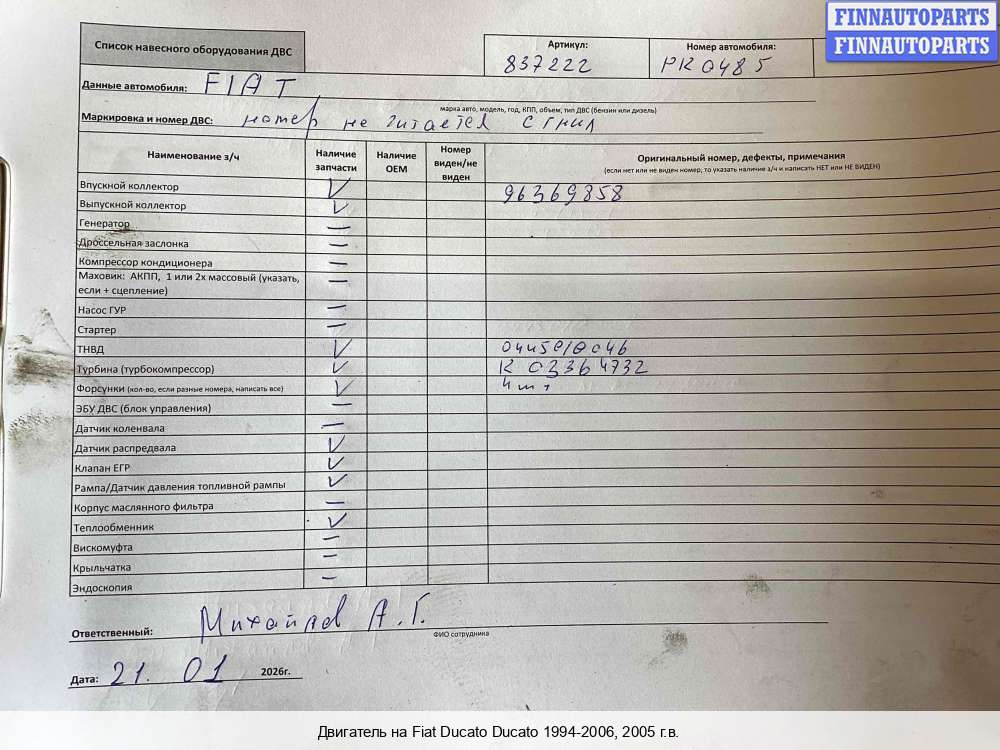 FINNAUTOPARTS
FINNAUTOPARTS
Список навесного оборудования ДВС
Артикул:
837222
Номер автомобиля:
PK0485
Данные автомобиля: FIAT
марка авто, модель, год, КПП, объем, тип ДВС (бензин или дизель)
Маркировка и номер ДВС: номер не читается сгнил
Наименование з/ч
Наличие запчасти
Наличие OEM
Номер виден/не виден
Оригинальный номер, дефекты, примечания
(если нет или не виден номер, то указать наличие з/ч и написать НЕТ или НЕ ВИДЕН)
Впускной коллектор ✓ 96369858
Выпускной коллектор ✓
Генератор —
Дроссельная заслонка —
Компрессор кондиционера —
Маховик: АКПП, 1 или 2х массовый (указать, —
если + сцепление)
Насос ГУР —
Стартер —
ТНВД ✓ 0445010046
Турбина (турбокомпрессор) ✓ K 03364732
Форсунки (кол-во, если разные номера, написать все) ✓ 4 шт.
ЭБУ ДВС (блок управления) —
Датчик коленвала —
Датчик распредвала ✓
Клапан ЕГР ✓
Рампа/Датчик давления топливной рампы ✓
Корпус маслянного фильтра —
Теплообменник ✓
Вискомуфта —
Крыльчатка —
Эндоскопия —
Ответственный: Михайлов А.Г.
ФИО сотрудника
Дата: 21. 01 2026г.
Двигатель на Fiat Ducato Ducato 1994-2006, 2005 г.в.